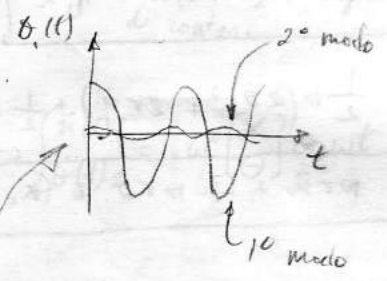 θ₁(t)
2º modo
t
1º modo